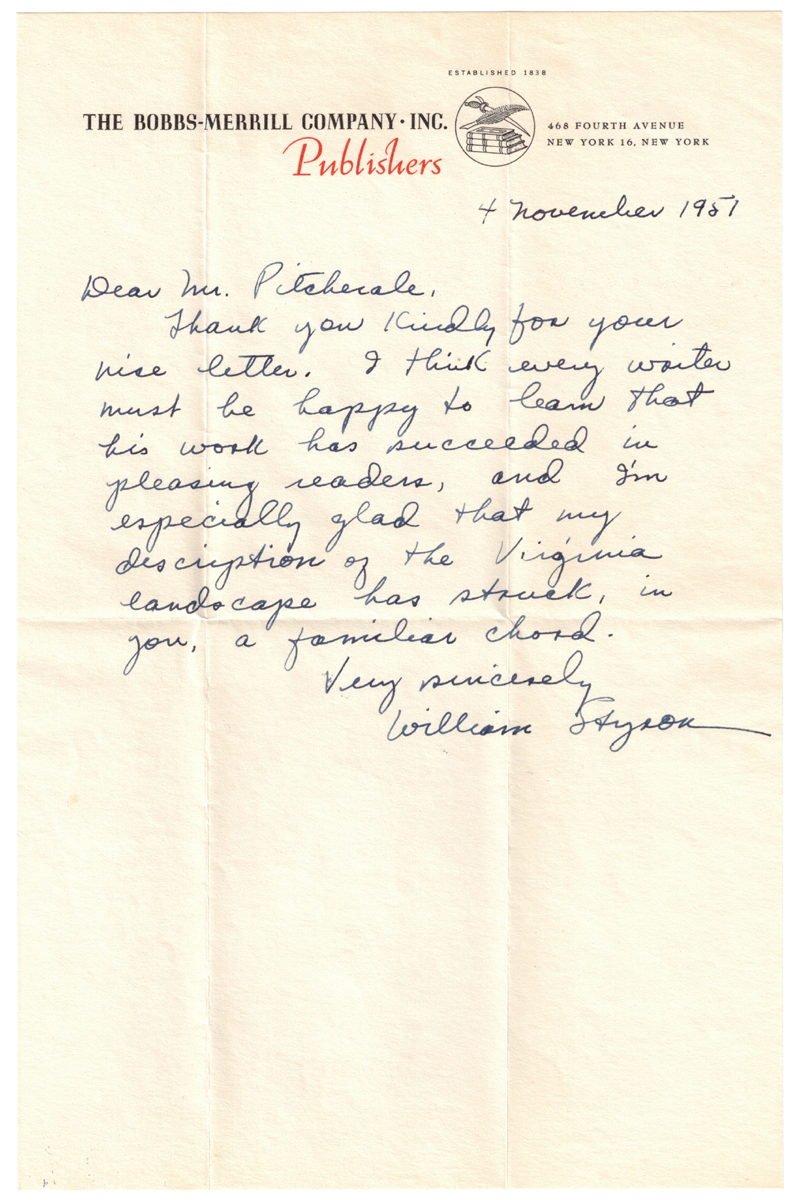 ESTABLISHED 1838
THE BOBBS-MERRILL COMPANY · INC.
Publishers
468 FOURTH AVENUE
NEW YORK 16, NEW YORK
4 November 1951
Dear Mr.
Thank you kindly for your
nice letter. I think every writer
must be happy to learn that
his work has succeeded in
pleasing readers, and I'm
especially glad that my
description of the Virginia
landscape has struck, in
you, a familiar chord.
Very sincerely
William Styron